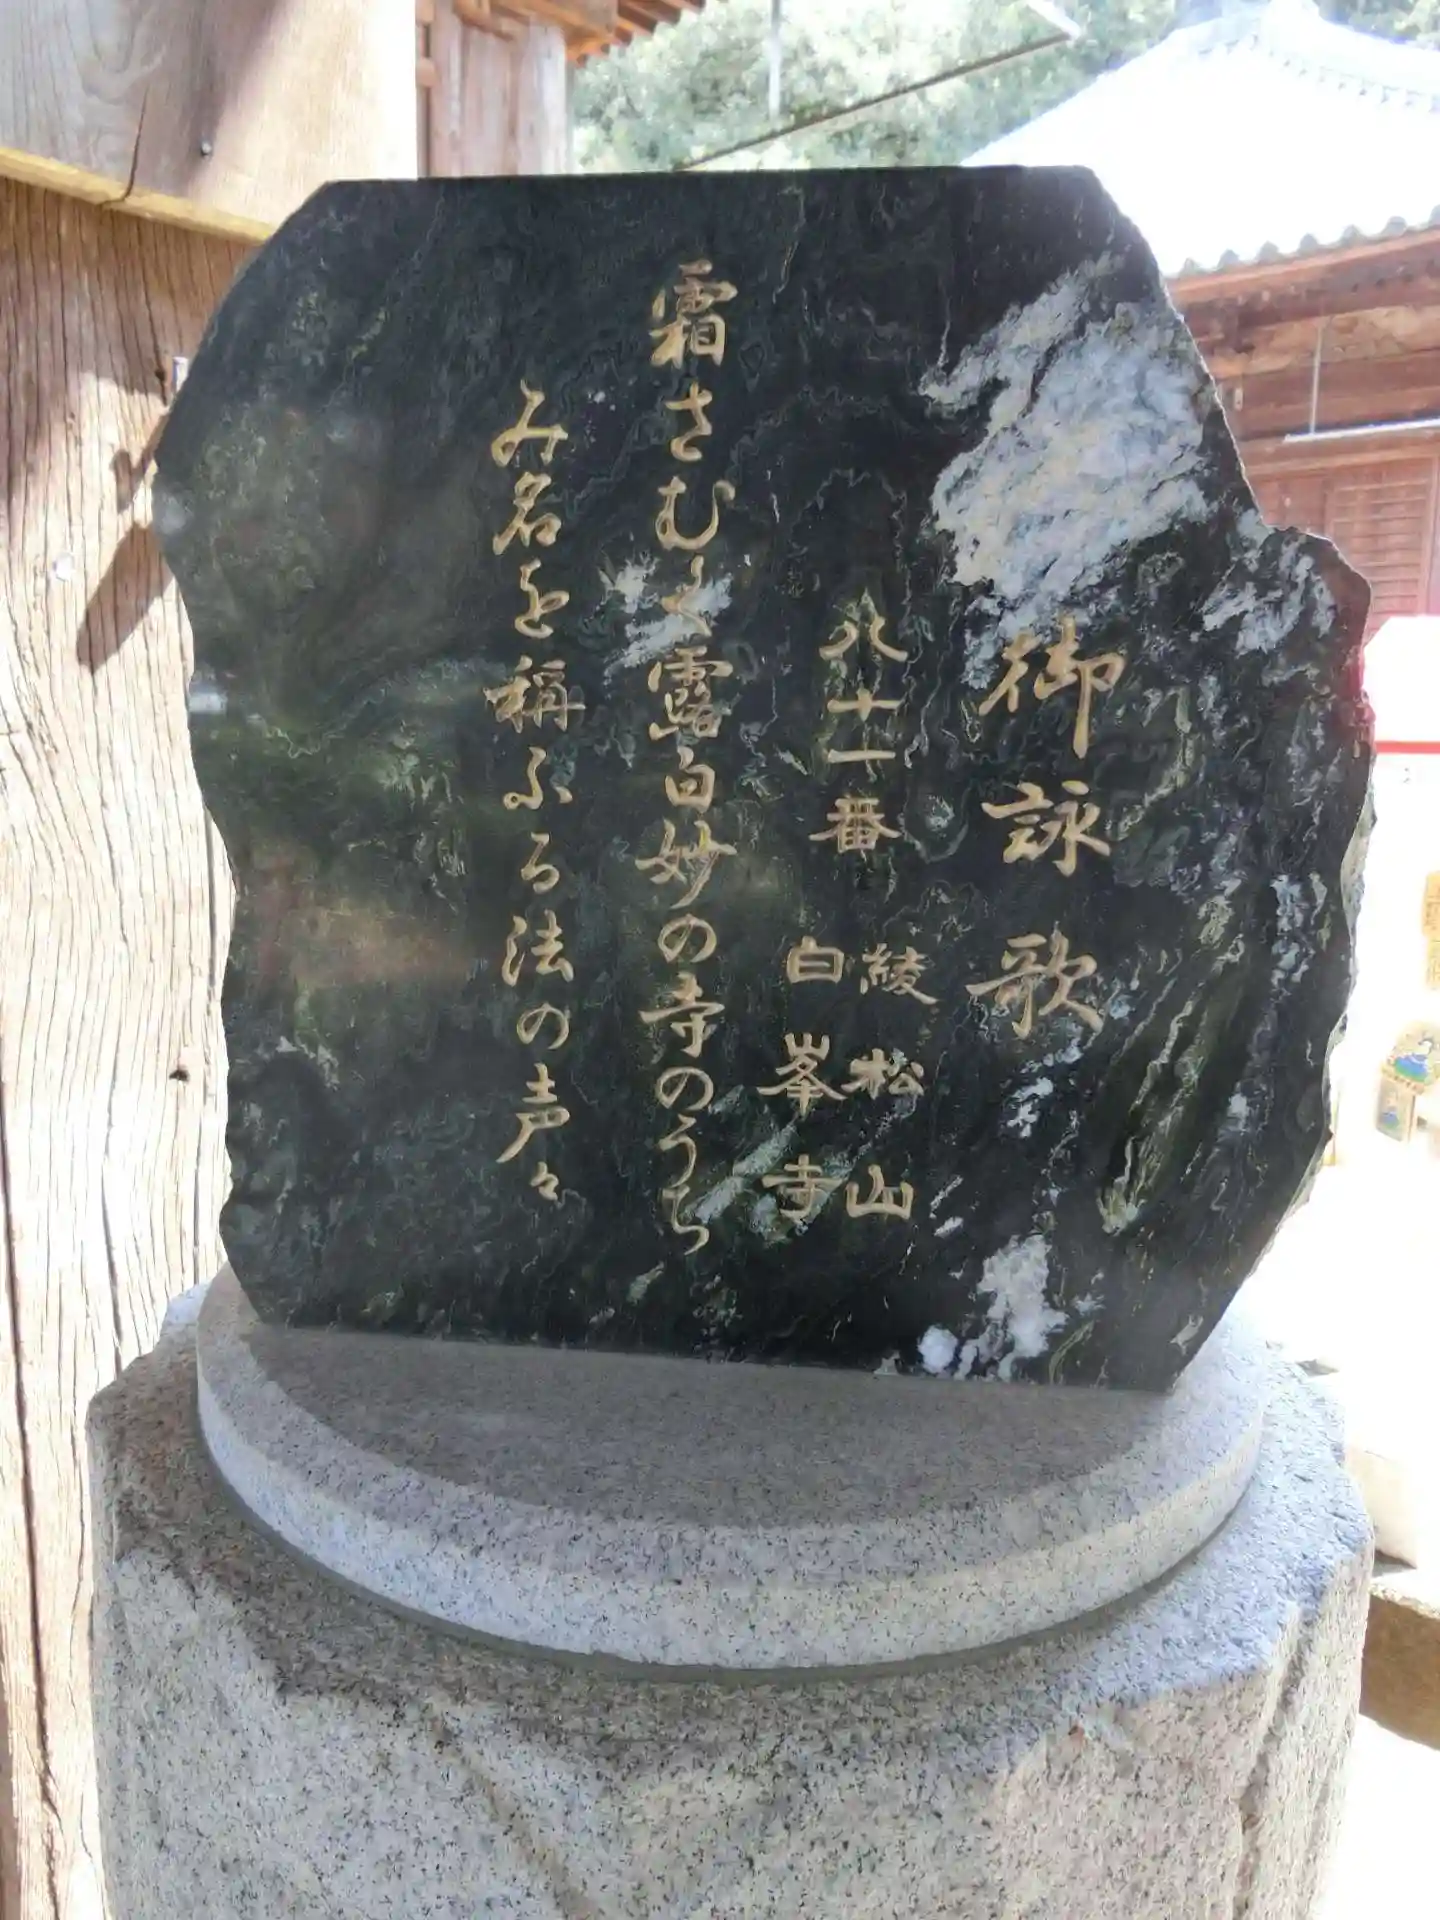 御詠歌
八十一番
綾松山
白峯寺
霜さむく露白妙の寺のうち
み名を称ふる法の声々